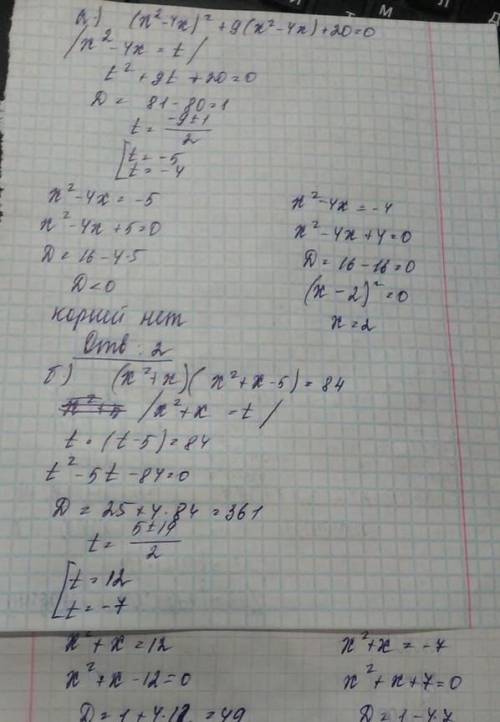 а) (x²-4x)²+9(x²-4x)+20=0
/x²-4x=t/
t²+9t+20=0
D= 81-80=1
t= (-9±1)/2
[t=-5
t=-4
x²-4x=-5
x²-4x+5=0
D=16-4·5
D<0
корний нет
x²-4x=-4
x²-4x+4=0
D=16-16=0
(x-2)²=0
x=2
Отв: 2
б) (x²+x)(x²+x-5)=84
/x²+x=t/
t=(t-5)=84
t²-5t-84=0
D=25+4·84=361
t= (5±19)/2
[t=12
t=-7
x²+x=12
x²+x-12=0
D=1+4·12=49
x²+x=-7
x²+x+7=0
D=1-4·7